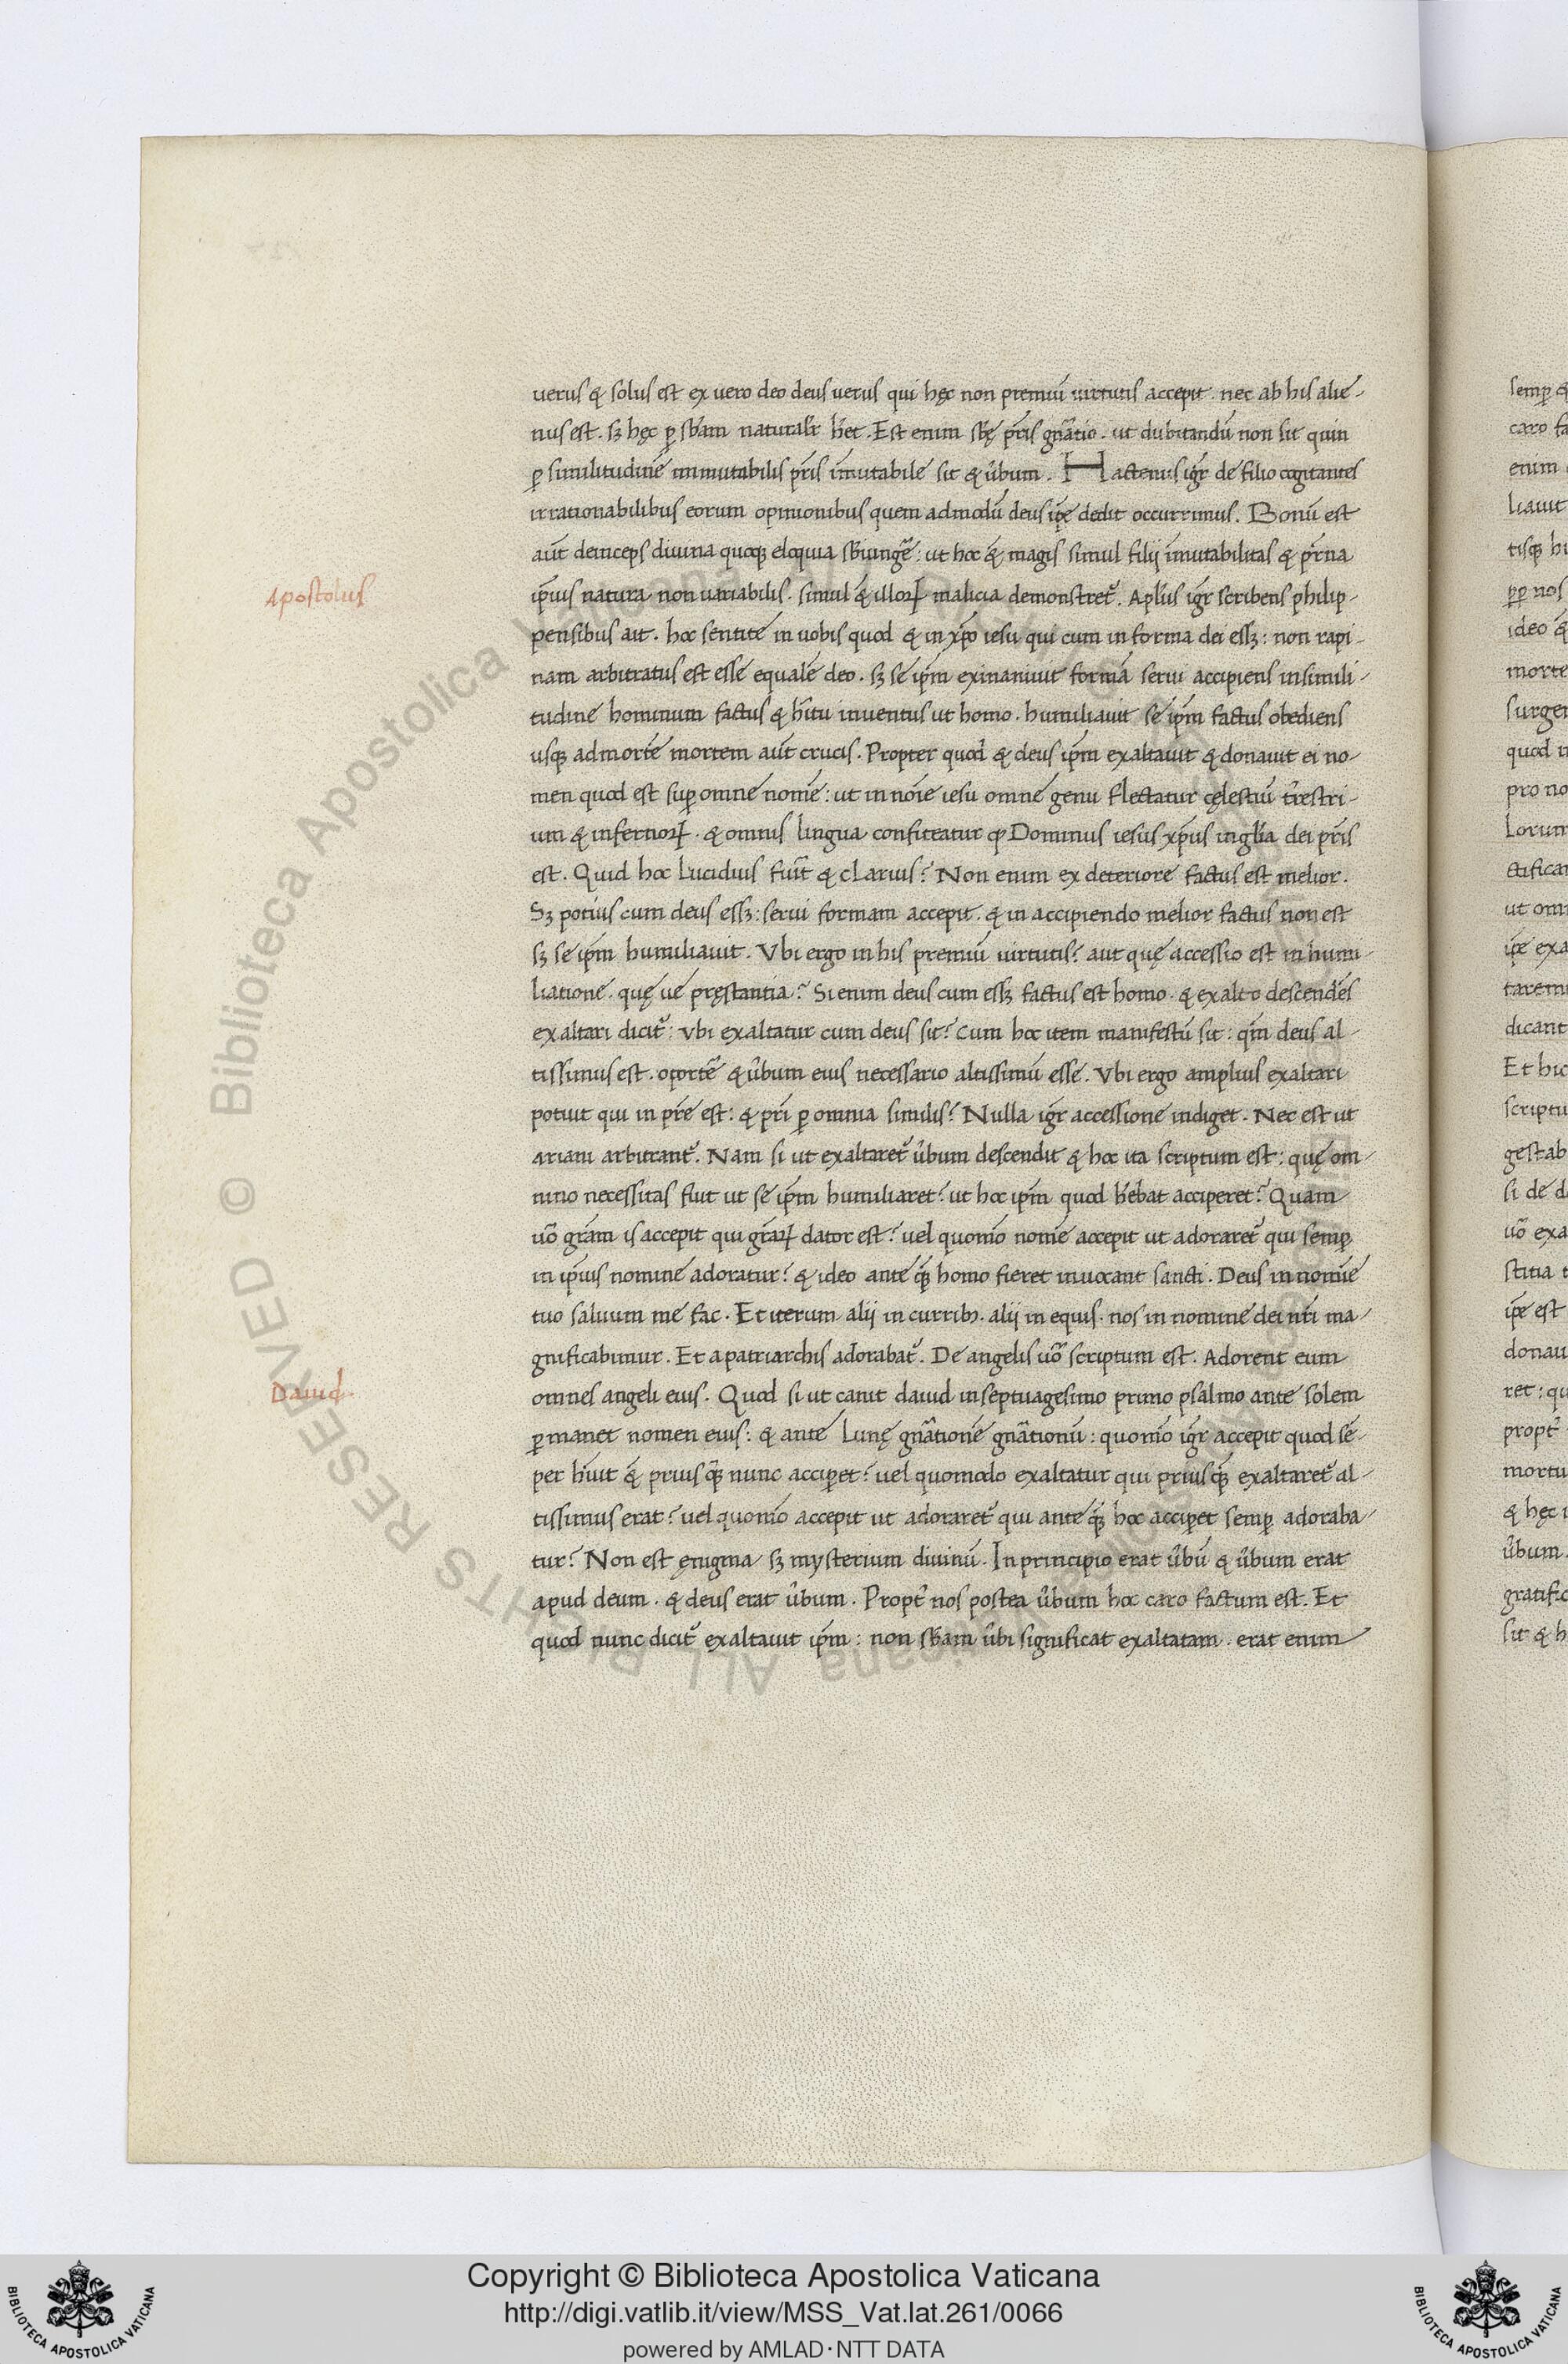 uerus & solus est ex uero deo deus uerus qui hęc non premiū uirtutis accepit. nec ab his alie-
nus est. sꝫ hęc ꝑ sƀam naturalr̄ hēt. Est enim sƀę pr̄is gn̄atio. ut dubitandū non sit quin
ꝑ similitudinē immutabilis pr̄is īmutabile sit & ūbum. Hactenus igr̄ de filio cogitantes
irrationabilibus eorum opinionibus quem admodū deus ip̄e dedit occurrimus. Bonū est
aūt deinceps diuina quoqꝫ eloquia sƀiungē: ut hoc & magis simul filij īmutabilitas & pr̄na
ip̄ius natura non uariabilis. simul & illoꝝ malicia demonstret᷑. Apl̄us igr̄ scribens philip-
pensibus ait. hoc sentite in uobis quod & in xp̄o iesu qui cum in forma dei essꝫ: non rapi-
nam arbitratus est esse equale deo. sꝫ se ip̄m exinaniuit formā serui accipiens in simili-
tudine hominum factus & hītu inuentus ut homo. humiliauit se ip̄m factus obediens
usqꝫ ad mortē mortem aūt crucis. Propter quod & deus ip̄m exaltauit & donauit ei no-
men quod est suꝑ omne nomē: ut in noīe iesu omne genu flectatur cęlestiū t̄restri-
um & infernoꝝ. & omnis lingua confiteatur ꝙ Dominus iesus xp̄us in gl̄ia dei pr̄is
est. Quid hoc lucidius fuīt & clarius? Non enim ex deteriore factus est melior.
Sꝫ potius cum deus essꝫ: serui formam accepit. & in accipiendo melior factus non est
sꝫ se ip̄m humiliauit. Vbi ergo in his premiū uirtutis? aut quę accessio est in humi-
liatione. quę ue pręstantia? Si enim deus cum essꝫ factus est homo. & ex alto descendēs
exaltari dicit᷑: vbi exaltatur cum deus sit? Cum hoc item manifestū sit: qm̄ deus al-
tissimus est. oportē & ūbum eius necessario altissimū esse. Vbi ergo amplius exaltari
potuit qui in pr̄e est: & pr̄i ꝑ omnia similis? Nulla igr̄ accessione indiget. Nec est ut
ariani arbitrant᷑. Nam si ut exaltaret᷑ ūbum descendit & hoc ita scriptum est: quę om-
nino necessitas fuit ut se ip̄m humiliaret? ut hoc ip̄m quod hēbat acciperet? Quam
uō grām is accepit qui gr̄aꝝ dator est? uel quomō nomē accepit ut adoraret᷑ qui semꝑ
in ip̄ius nomine adoratur? & ideo ante qꝫ homo fieret inuocant sancti. Deus in nomīe
tuo saluum me fac. Et iterum alij in curribꝫ. alij in equis. nos in nomine dei nr̄i ma-
gnificabimur. Et a patriarchis adorabat᷑. De angelis uō scriptum est. Adorent eum
omnes angeli eius. Quod si ut canit dauid in septuagesimo primo psalmo ante solem
ꝑmanet nomen eius: & ante lunę gn̄ationē gn̄ationū: quomō igr̄ accepit quod se-
per hūit & prius qꝫ nunc acciꝑet? uel quomodo exaltatur qui prius qꝫ exaltaret᷑ al-
tissimus erat? uel quomō accepit ut adoraret᷑ qui ante qꝫ hoc acciꝑet semꝑ adoraba-
tur? Non est ęnigma sꝫ mysterium diuinū. In principio erat ūbū & ūbum erat
apud deum. & deus erat ūbum. Propt̄ nos postea ūbum hoc caro factum est. Et
quod nunc dicit᷑ exaltauit ip̄m: non sƀam ūbi significat exaltatam. erat enim
Apostolus
Dauid.
Copyright © Biblioteca Apostolica Vaticana
http://digi.vatlib.it/view/MSS_Vat.lat.261/0066
powered by AMLAD·NTT DATA